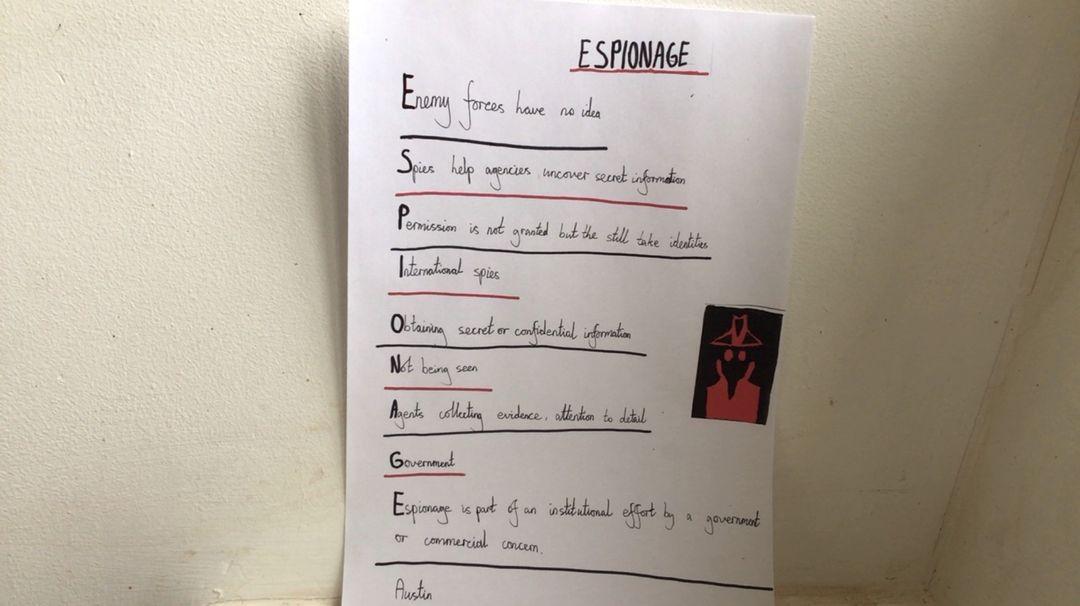 ESPIONAGE
Enemy forces have no idea
Spies help agencies uncover secret information
Permission is not granted but the still take identities
International spies
Obtaining secret or confidential information
Not being seen
Agents collecting evidence, attention to detail
Government
Espionage is part of an institutional effort by a government
or commercial concern.
Austin